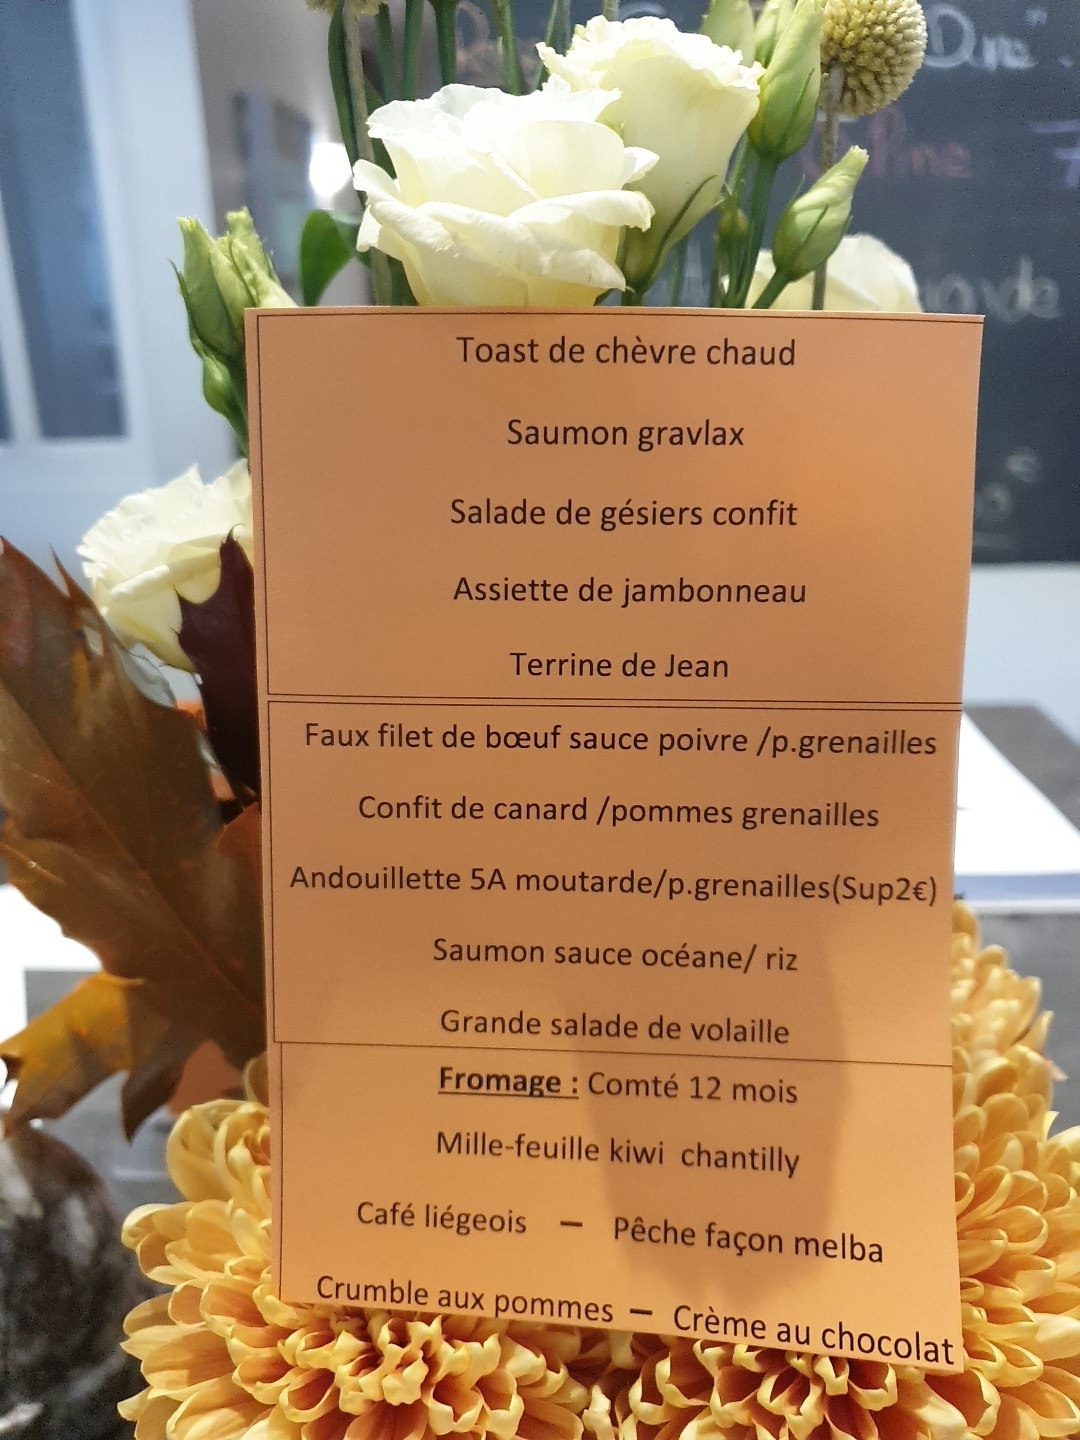 Toast de chèvre chaud
Saumon gravlax
Salade de gésiers confit
Assiette de jambonneau
Terrine de Jean
Faux filet de bœuf sauce poivre /p.grenailles
Confit de canard /pommes grenailles
Andouillette 5A moutarde/p.grenailles(Sup2€)
Saumon sauce océane/ riz
Grande salade de volaille
Fromage : Comté 12 mois
Mille-feuille kiwi chantilly
Café liégeois – Pêche façon melba
Crumble aux pommes – Crème au chocolat